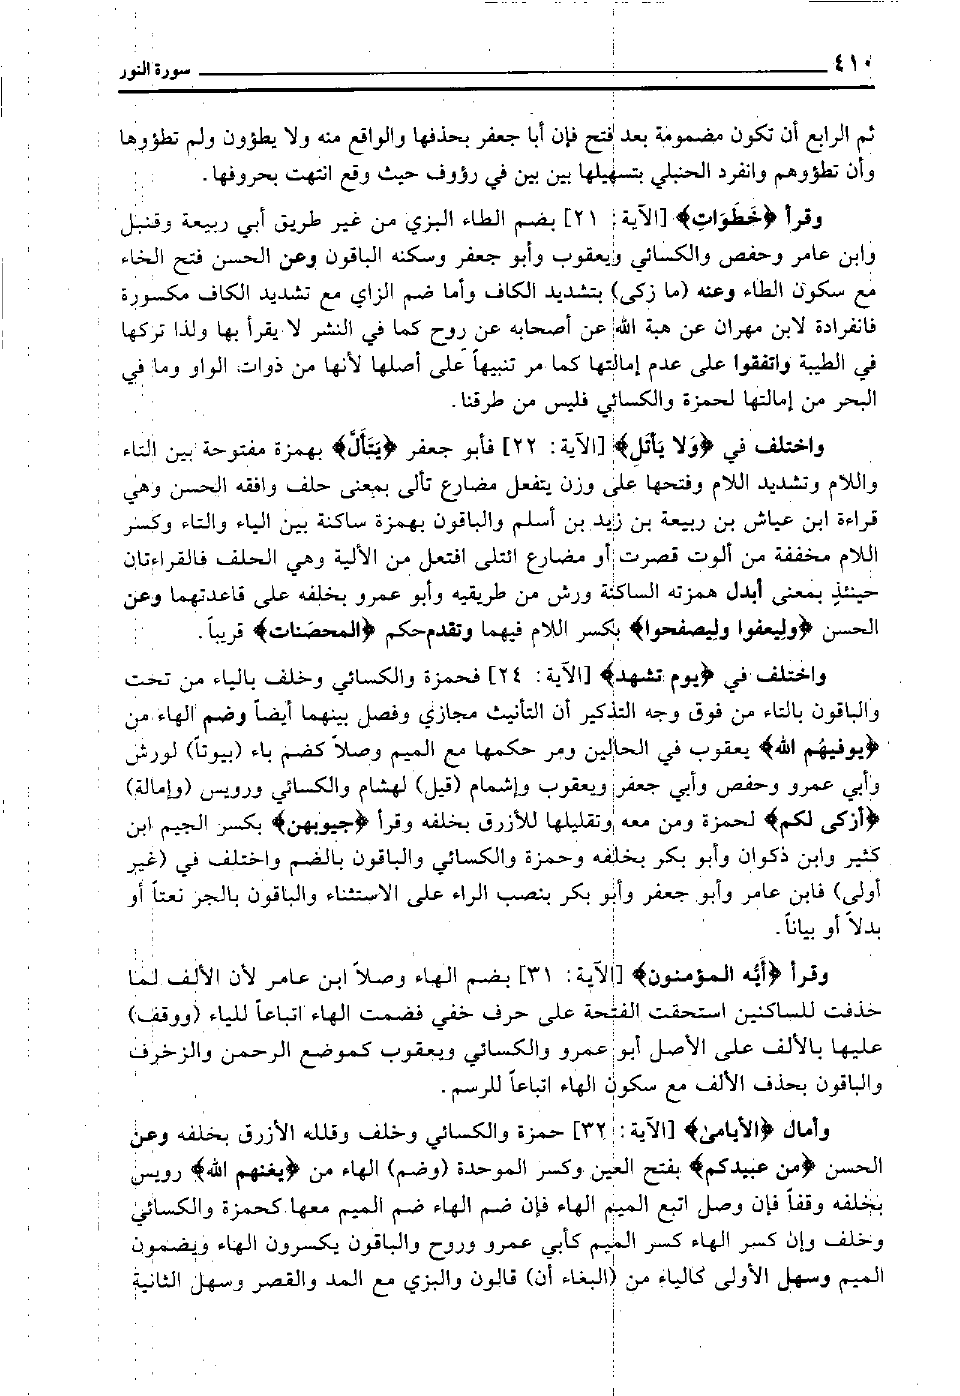 ٤١٠ سورة النور
ثم الرابع أن تكون مضمومة بعد فتح فإن أبا جعفر بحذفها والواقع منه ولا يطؤون ولم تطؤوها
وأن تطؤوهم وانفرد الحنبلي بتسهيلها بين بين في رؤوف حيث وقع انتهت بحروفها.
وقرأ ﴿خَطَوَاتِ﴾ [الآية: ٢١] بضم الطاء البزي من غير طريق أبي ربيعة وقنبل
وابن عامر وحفص والكسائي ويعقوب وأبو جعفر وسكنه الباقون وعن الحسن فتح الخاء
مع سكون الطاء وعنه (ما زكى) بتشديد الكاف وأما ضم الزاي مع تشديد الكاف مكسورة
فانفرادة لابن مهران عن هبة الله عن أصحابه عن روح كما في النشر لا يقرأ بها ولذا تركها
في الطيبة واتفقوا على عدم إمالتها كما مر تنبيهاً على أصلها لأنها من ذوات الواو وما في
البحر من إمالتها لحمزة والكسائي فليس من طرقنا.
واختلف في ﴿وَلا يَأتَلِ﴾ [الآية: ٢٢] فأبو جعفر ﴿يَتَأَلَّ﴾ بهمزة مفتوحة بين التاء
واللام وتشديد اللام وفتحها على وزن يتفعل مضارع تألى بمعنى حلف وافقه الحسن وهي
قراءة ابن عياش بن ربيعة بن زيد بن أسلم والباقون بهمزة ساكنة بين الياء والتاء وكسر
اللام مخففة من ألوت قصرت أو مضارع ائتلى افتعل من الألية وهي الحلف فالقراءتان
حينئذٍ بمعنى أبدل همزته الساكنة ورش من طريقيه وأبو عمرو بخلفه على قاعدتهما وعن
الحسن ﴿ولِيعفوا ولِيصفحوا﴾ بكسر اللام فيهما وتقدم حكم ﴿المحصَنات﴾ قريباً.
واختلف في ﴿يوم تشهد﴾ [الآية: ٢٤] فحمزة والكسائي وخلف بالياء من تحت
والباقون بالتاء من فوق وجه التذكير أن التأنيث مجازي وفصل بينهما أيضاً وضم الهاء من
﴿يوفيهُم الله﴾ يعقوب في الحالين ومر حكمها مع الميم وصلاً كضم باء (بيوتاً) لورش
وأبي عمرو وحفص وأبي جعفر ويعقوب وإشمام (قيل) لهشام والكسائي ورويس (وإمالة)
﴿أزكى لكم﴾ لحمزة ومن معه وتقليلها للأزرق بخلفه وقرأ ﴿جيوبهن﴾ بكسر الجيم ابن
كثير وابن ذكوان وأبو بكر بخلفه وحمزة والكسائي والباقون بالضم واختلف في (غير
أولى) فابن عامر وأبو جعفر وأبو بكر بنصب الراء على الاستثناء والباقون بالجر نعتاً أو
بدلاً أو بياناً.
وقرأ ﴿أَيُّه المؤمنون﴾ [الآية: ٣١] بضم الهاء وصلاً ابن عامر لأن الألف لما
حذفت للساكنين استحقت الفتحة على حرف خفي فضمت الهاء اتباعاً للياء (ووقف)
عليها بالألف على الأصل أبو عمرو والكسائي ويعقوب كموضع الرحمن والزخرف
والباقون بحذف الألف مع سكون الهاء اتباعاً للرسم.
وأمال ﴿الأيامى﴾ [الآية: ٣٢] حمزة والكسائي وخلف وقلله الأزرق بخلفه وعن
الحسن ﴿من عبيدكم﴾ بفتح العين وكسر الموحدة (وضم) الهاء من ﴿يغنهم الله﴾ رويس
بخلفه وقفاً فإن وصل اتبع الميم الهاء فإن ضم الهاء ضم الميم معها كحمزة والكسائي
وخلف وإن كسر الهاء كسر الميم كأبي عمرو وروح والباقون يكسرون الهاء ويضمون
الميم وسهل الأولى كالياء من (البغاء أن) قالون والبزي مع المد والقصر وسهل الثانية